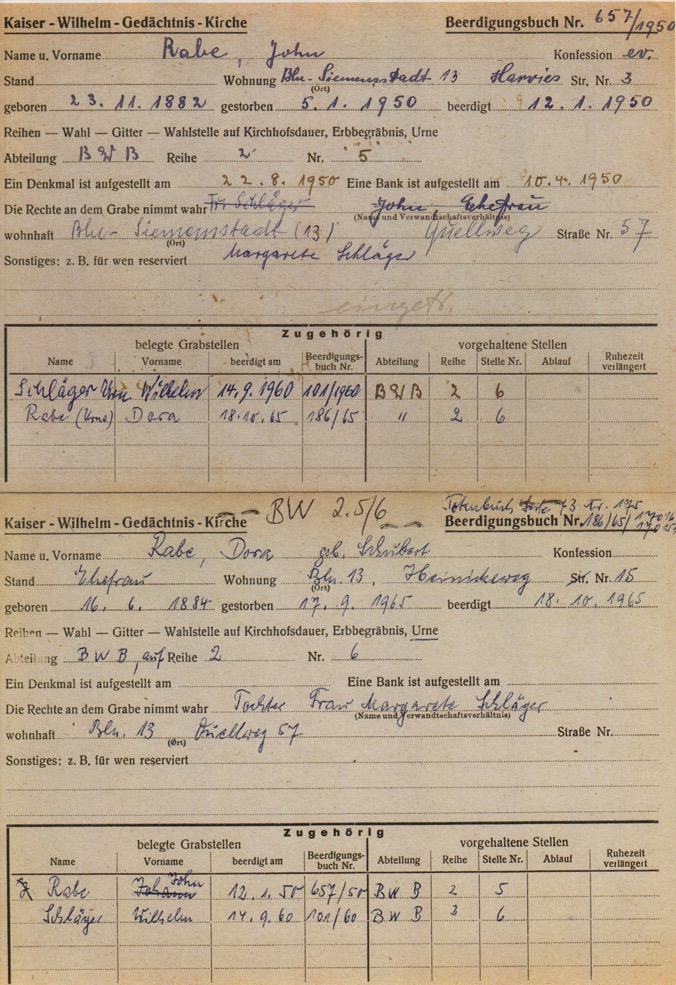 Kaiser - Wilhelm - Gedächtnis - Kirche Beerdigungsbuch Nr. 657/1950
Name u. Vorname Rabe, John Konfession ev.
Stand Wohnung Bln-Siemensstadt 13 Harries Str. Nr. 3
(Ort)
geboren 23. 11. 1882 gestorben 5. 1. 1950 beerdigt 12. 1. 1950
Reihen — Wahl — Gitter — Wahlstelle auf Kirchhofsdauer, Erbbegräbnis, Urne
Abteilung B W B Reihe 2 Nr. 5
Ein Denkmal ist aufgestellt am 22. 8. 1950 Eine Bank ist aufgestellt am 10. 4. 1950
Die Rechte an dem Grabe nimmt wahr Fr. Schläger John Ehefrau
(Name und Verwandtschaftsverhältnis)
wohnhaft Bln- Siemensstadt (13) Quellweg Straße Nr. 57
(Ort)
Sonstiges: z. B. für wen reserviert Margarete Schläger
eingetr.
Zugehörig
belegte Grabstellen vorgehaltene Stellen
Name Vorname beerdigt am Beerdigungs-buch Nr. Abteilung Reihe Stelle Nr. Ablauf Ruhezeit verlängert
Schläger Wilhelm 14. 9. 1960 101/1960 B W B 2 6
Rabe (Urne) Dora 18. 10. 65 186/65 " 2 6
BW 2. 5/6
Totenbuch Seite 73 Nr. 175
Kaiser - Wilhelm - Gedächtnis - Kirche Beerdigungsbuch Nr. 186/65
Name u. Vorname Rabe, Dora geb. Schubert Konfession
Stand Ehefrau Wohnung Bln. 13, Heinickeweg Str. Nr. 15
(Ort)
geboren 16. 6. 1884 gestorben 17. 9. 1965 beerdigt 18. 10. 1965
Reihen — Wahl — Gitter — Wahlstelle auf Kirchhofsdauer, Erbbegräbnis, Urne
Abteilung B W B, auf Reihe 2 Nr. 6
Ein Denkmal ist aufgestellt am Eine Bank ist aufgestellt am
Die Rechte an dem Grabe nimmt wahr Tochter Frau Margarete Schläger
(Name und Verwandtschaftsverhältnis)
wohnhaft Bln. 13 Quellweg 57 Straße Nr.
(Ort)
Sonstiges: z. B. für wen reserviert
Zugehörig
belegte Grabstellen vorgehaltene Stellen
Name Vorname beerdigt am Beerdigungs-buch Nr. Abteilung Reihe Stelle Nr. Ablauf Ruhezeit verlängert
Rabe Johann John 12. 1. 50 657/50 B W B 2 5
Schläger Wilhelm 14. 9. 60 101/60 B W B 2 6